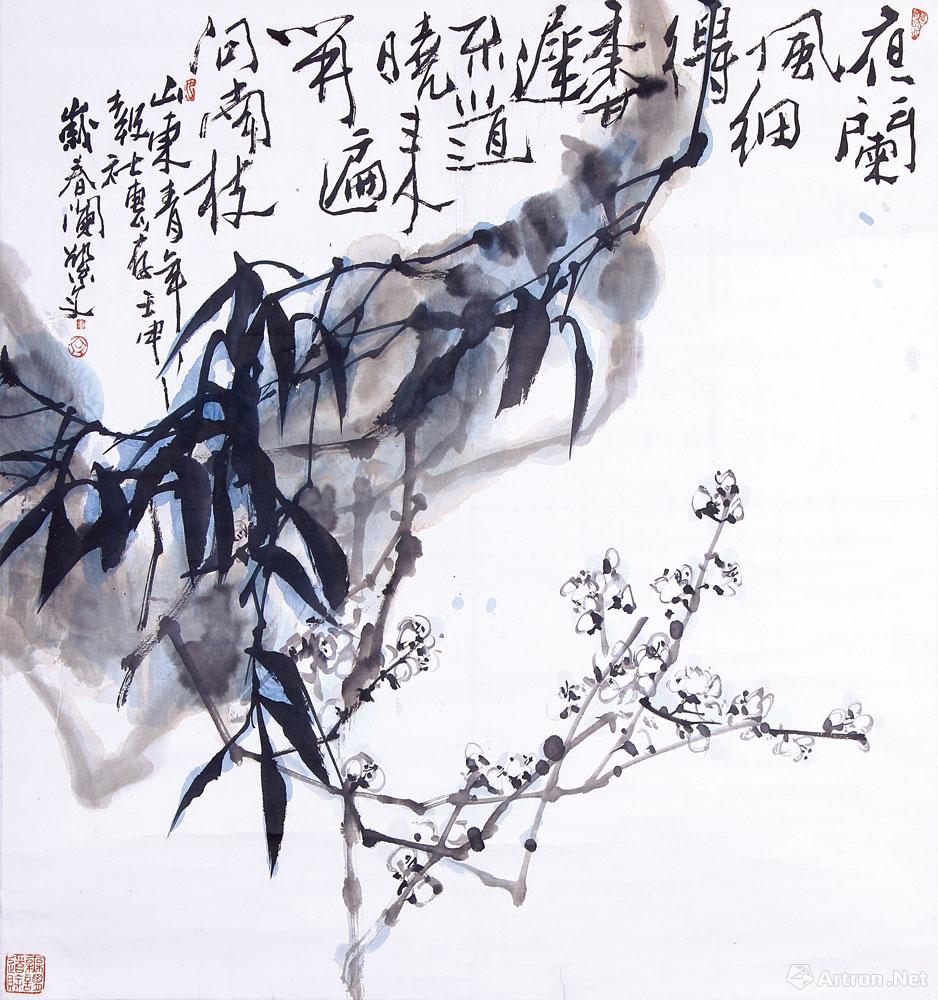 夜闌
風細
得
香
遲
不道
曉來
開遍
向南枝
山東青年
報社惠存壬申
歲春
Artron.Net